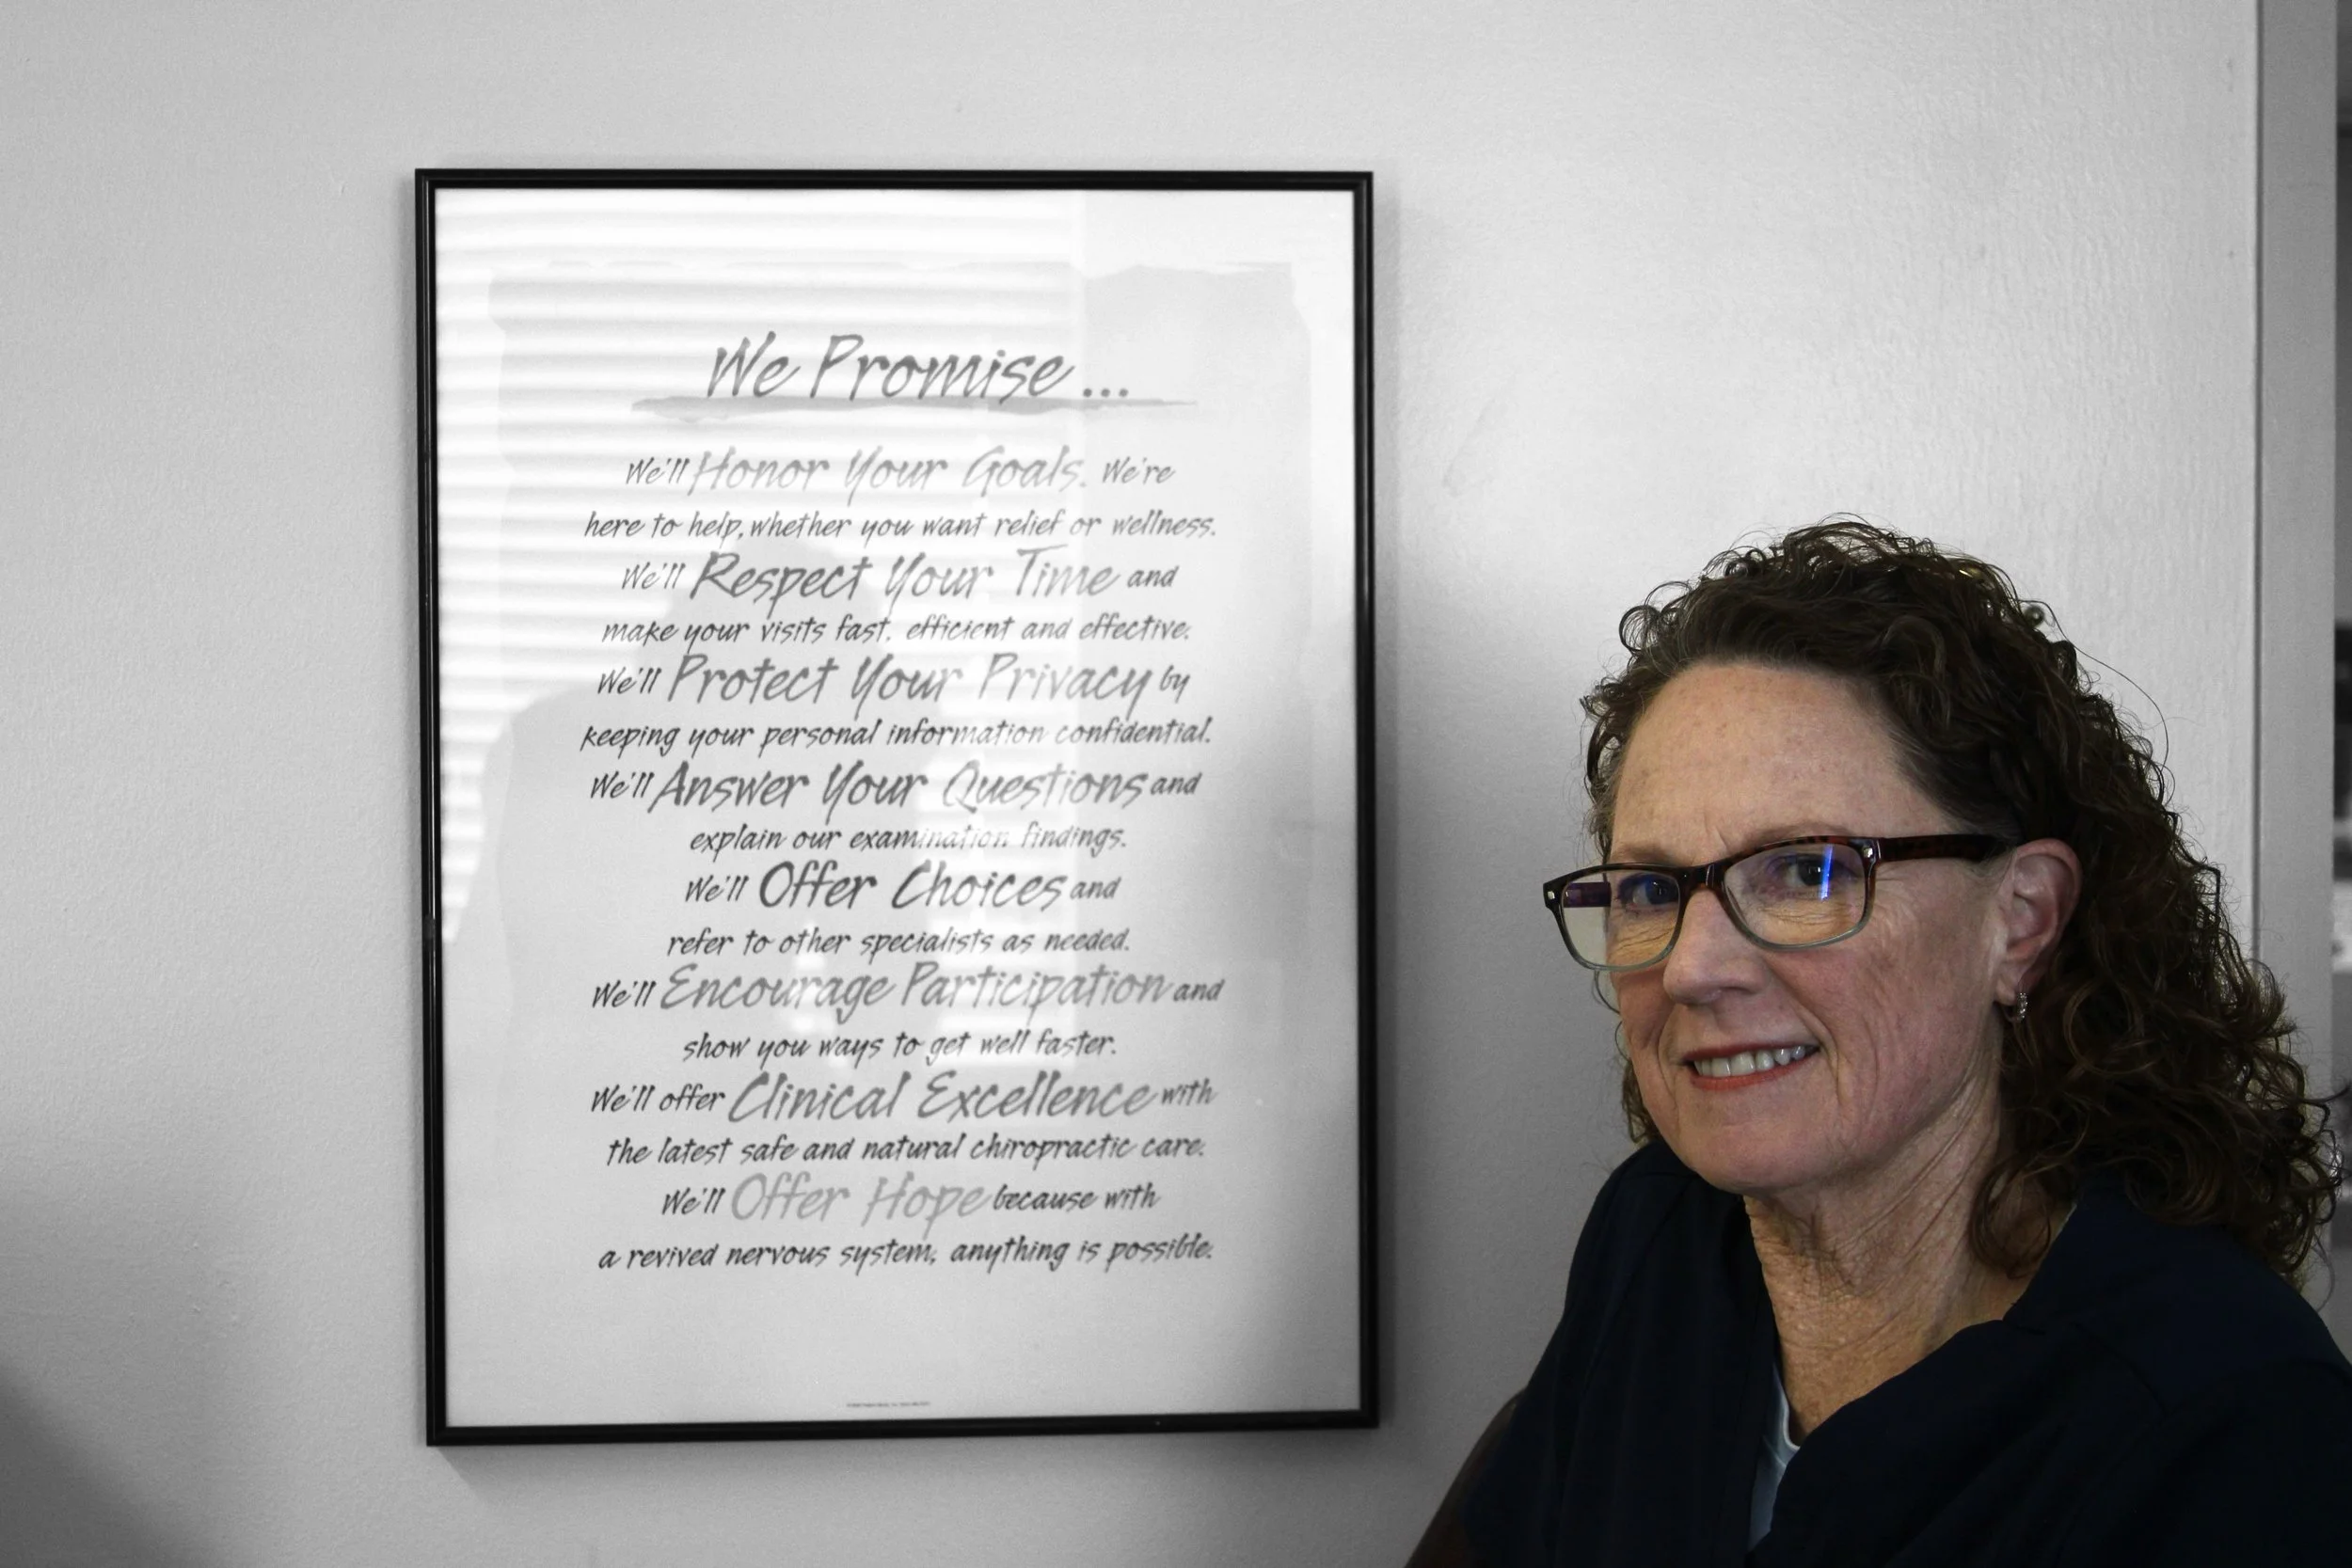 We Promise ...
We'll Honor Your Goals. We're
here to help, whether you want relief or wellness.
We'll Respect Your Time and
make your visits fast, efficient and effective.
We'll Protect Your Privacy by
keeping your personal information confidential.
We'll Answer Your Questions and
explain our examination findings.
We'll Offer Choices and
refer to other specialists as needed.
We'll Encourage Participation and
show you ways to get well faster.
We'll offer Clinical Excellence with
the latest safe and natural chiropractic care.
We'll Offer Hope because with
a revived nervous system, anything is possible.